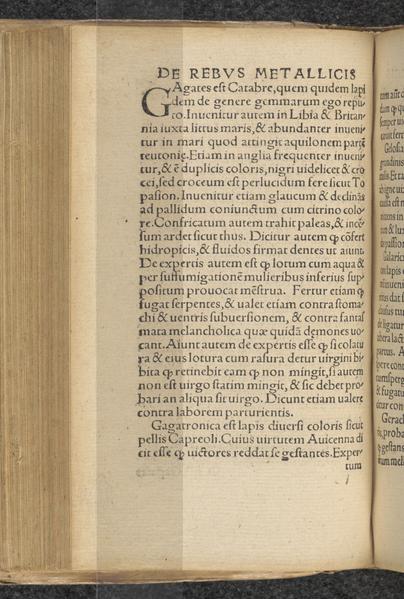 DE REBVS METALLICIS
GAgates est Catabre, quem quidem lapi
dem de genere gemmarum ego repu-
to. Inuenitur autem in Libia & Britan-
nia iuxta littus maris, & abundanter inueni
tur in mari quod attingit aquilonem partē
teutonię. Etiam in anglia frequenter inueni
tur, & ē duplicis coloris, nigri uidelicet & cro
cei, sed croceum est perlucidum fere sicut To
pasion. Inuenitur etiam glaucum & declinās
ad pallidum coniunctum cum citrino colo-
re. Confricatum autem trahit paleas, & incē-
sum ardet sicut thus. Dicitur autem ꝙ cōfert
hidropicis, & fluidos firmat dentes ut aiunt.
De expertis autem est ꝙ lotum cum aqua &
per suffumigationē mulieribus inferius sup
positum prouocat mēstrua. Fertur etiam ꝙ
fugat serpentes, & ualet etiam contra stoma-
chi & uentris subuersionem, & contra fantas
mata melancholica quæ quidā dęmones uo-
cant. Aiunt autem de expertis esse ꝙ si colatu
ra & eius lotura cum rasura detur uirgini bi-
bita ꝙ retinebit eam ꝙ non mingit, si autem
non est uirgo statim mingit, & sic debet pro-
bari an aliqua sit uirgo. Dicunt etiam ualere
contra laborem parturientis.
Gagatronica est lapis diuersi coloris sicut
pellis Capreoli. Cuius uirtutem Auicenna di
cit esse ꝙ uictores reddat se gestantes. Exper-
tum